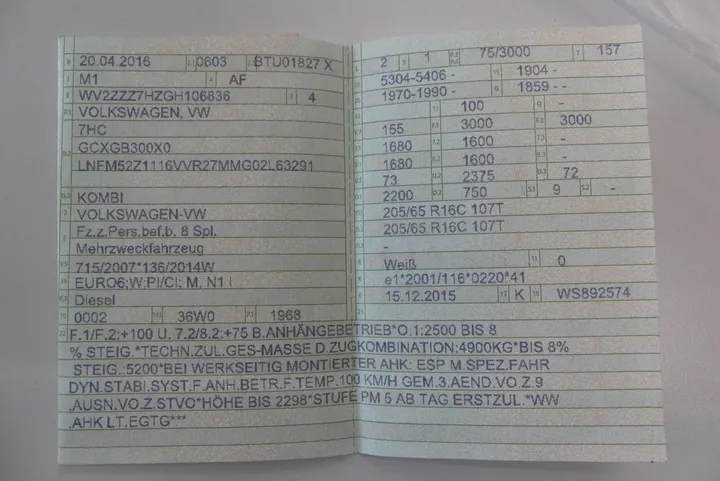 B 20.04.2016 2.1 0603 2.2 BTU01827 X
J M1 4 AF
E WV2ZZZ7HZGH106836 3 4
D.1 VOLKSWAGEN, VW
7HC
D.2 GCXGB300X0
LNFM52Z1116VVR27MMG02L63291
D.3 KOMBI
2 VOLKSWAGEN-VW
5 Fz.z.Pers.bef.b. 8 Spl.
Mehrzweckfahrzeug
V.9 715/2007*136/2014W
14 EURO6;W:PI/CI; M, N1 I
P.3 Diesel
10 0002 14.1 36W0 P.1 1968
L 2 9 1 P.2 P.4 75/3000 T 157
18 5304-5406 - 19 1904 -
20 1970-1990 - G 1859 --
12 - 13 100 Q -
V.7 155 F.1 3000 F.2 3000
7.1 1680 7.2 1600 7.3 -
8.1 1680 8.2 1600 8.3 -
U.1 73 U.2 2375 U.3 72
O.1 2200 O.2 750 S.1 9 S.2 -
15.1 205/65 R16C 107T
15.2 205/65 R16C 107T
15.3 -
R Weiß 11 0
K e1*2001/116*0220*41
6 15.12.2015 17 K 16 WS892574
21
22 F.1/F.2:+100 U. 7.2/8.2:+75 B.ANHÄNGEBETRIEB*O.1:2500 BIS 8
% STEIG.*TECHN.ZUL.GES-MASSE D.ZUGKOMBINATION:4900KG*BIS 8%
STEIG.:5200*BEI WERKSEITIG MONTIERTER AHK: ESP M.SPEZ.FAHR
DYN.STABI.SYST.F.ANH.BETR.F.TEMP.100 KM/H GEM.3.AEND.VO.Z.9
.AUSN.VO.Z.STVO*HÖHE BIS 2298*STUFE PM 5 AB TAG ERSTZUL.*WW
.AHK LT.EGTG***